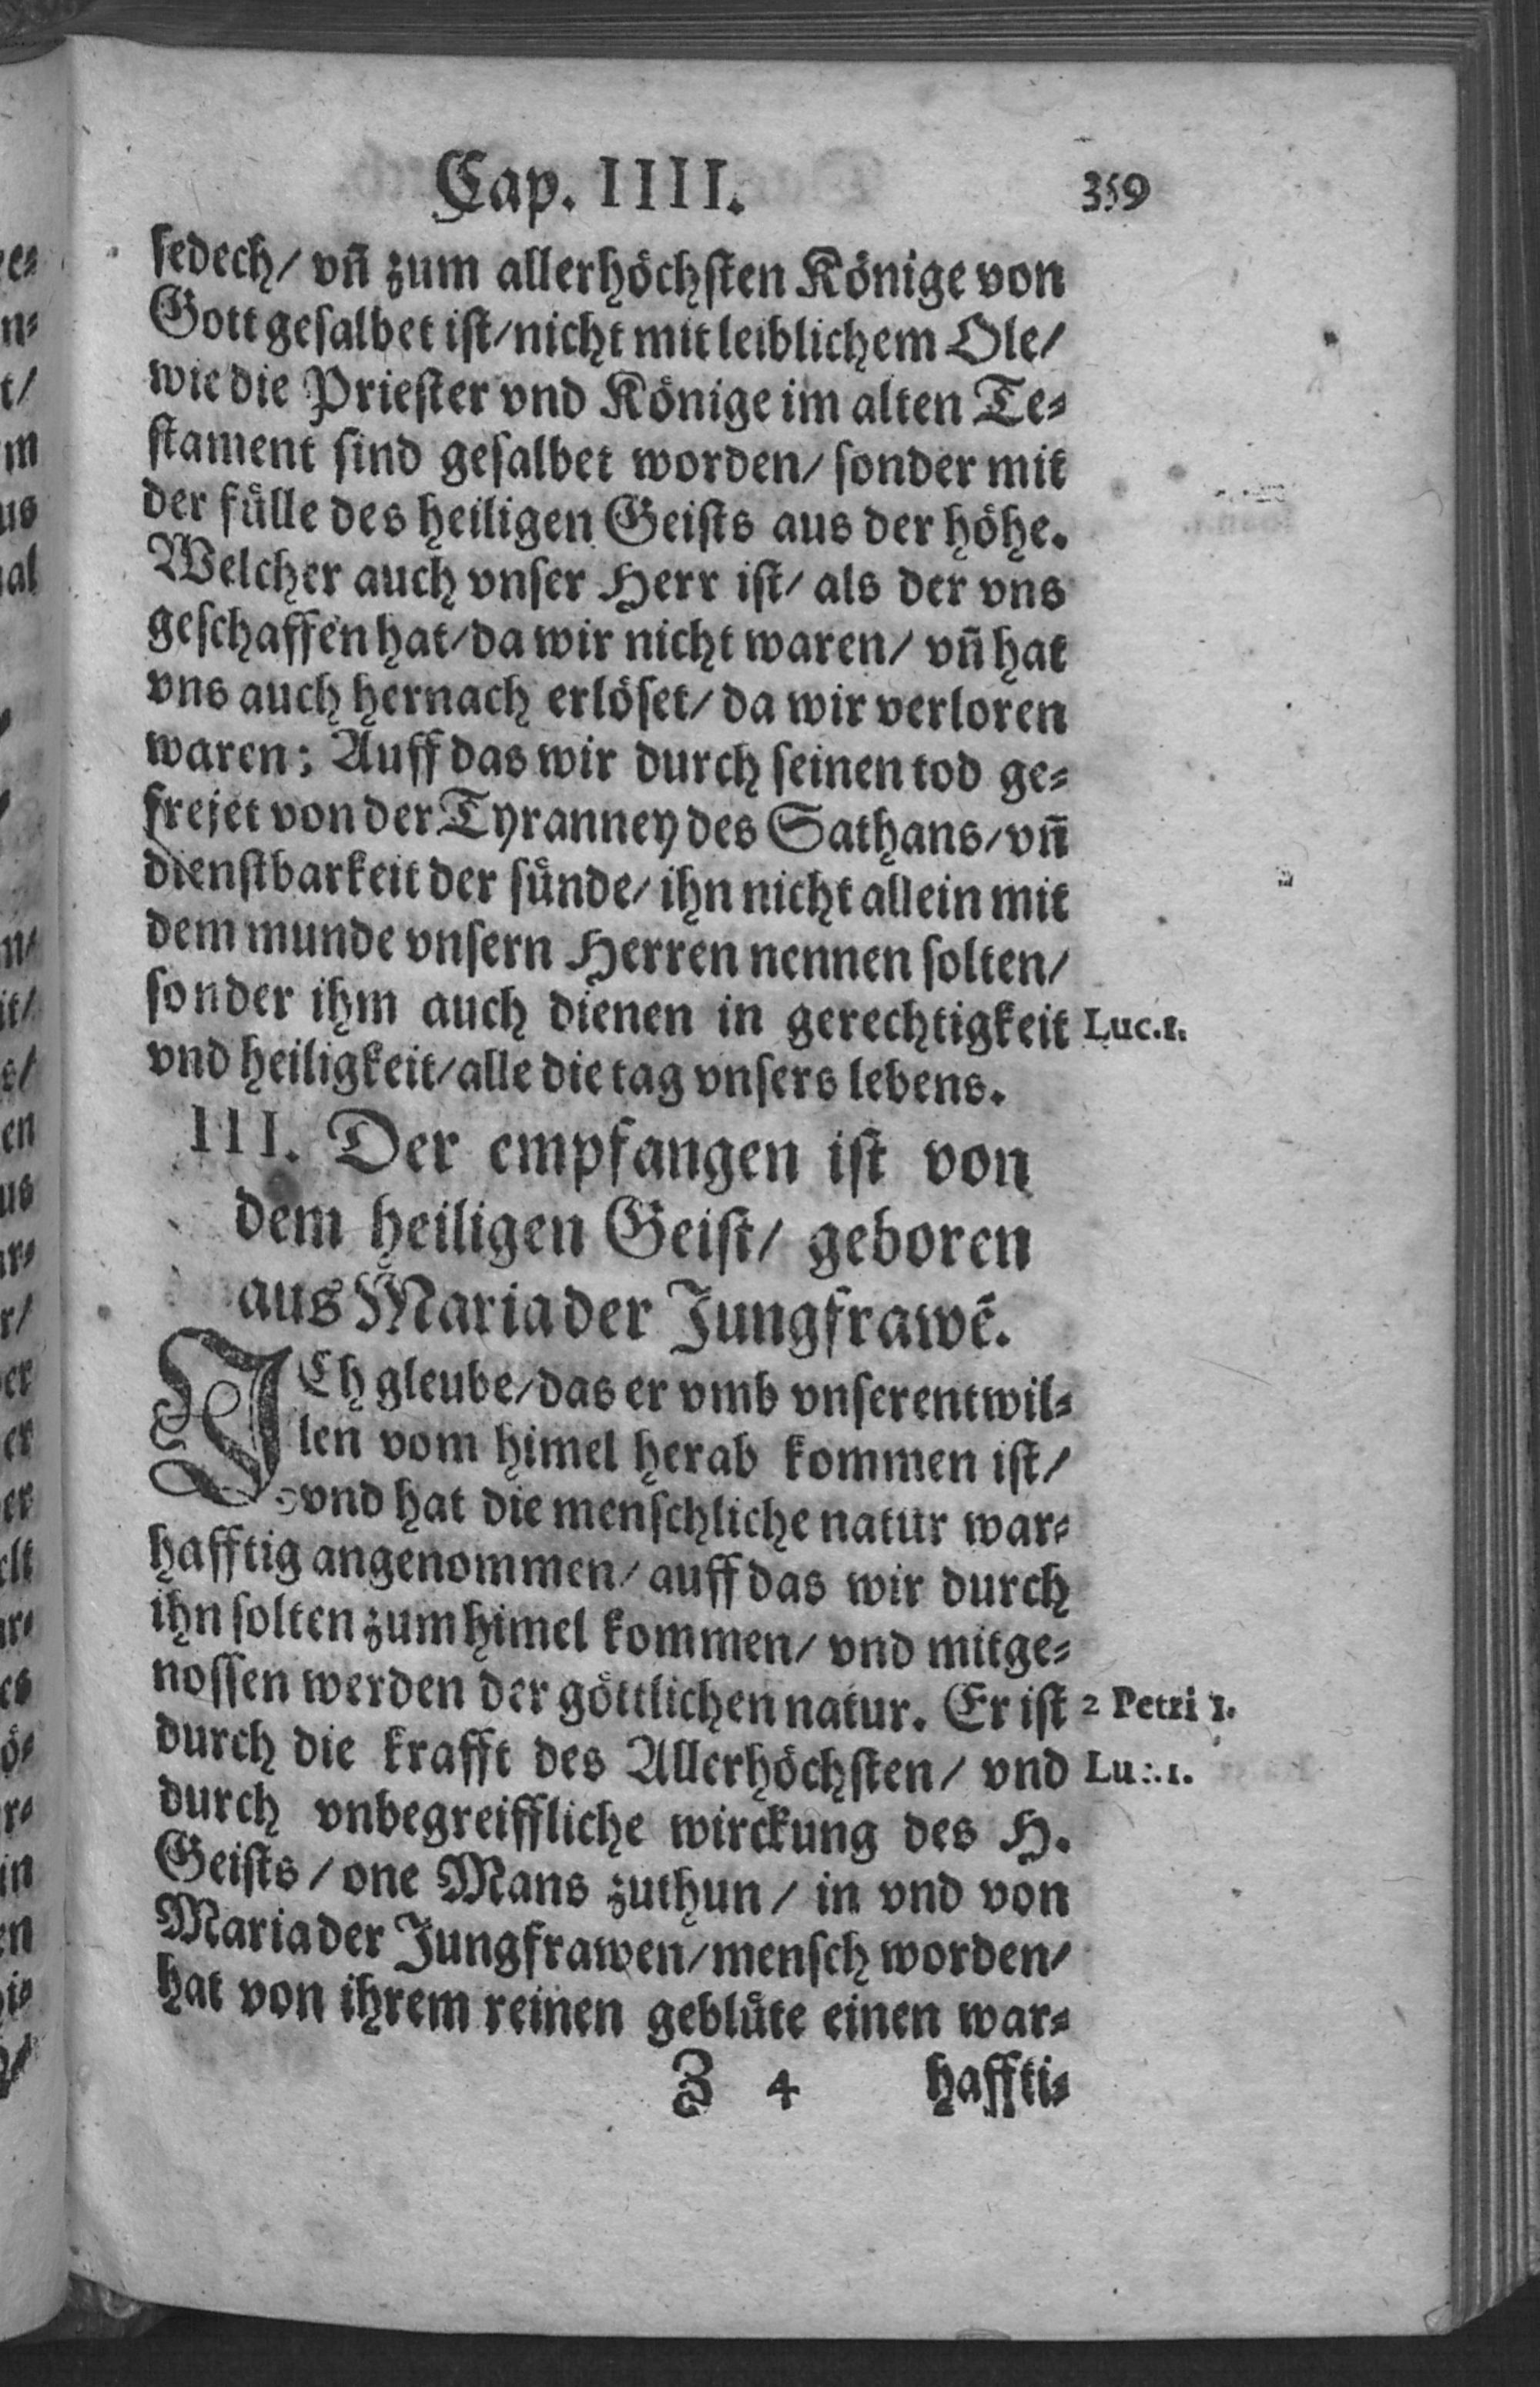 Cap. IIII. 359
sedech/ vñ zum allerhöchsten Könige von
Gott gesalbet ist/ nicht mit leiblichem Ole/
wie die Priester vnd Könige im alten Te⸗
stament sind gesalbet worden/ sonder mit
der fülle des heiligen Geists aus der höhe.
Welcher auch vnser Herr ist/ als der vns
geschaffen hat/ da wir nicht waren/ vñ hat
vns auch hernach erlöset/ da wir verloren
waren: Auff das wir durch seinen tod ge⸗
frejet von der Tyranney des Sathans/ vñ
dienstbarkeit der sünde/ ihn nicht allein mit
dem munde vnsern Herren nennen solten/
sonder ihm auch dienen in gerechtigkeit Luc.1.
vnd heiligkeit/ alle die tag vnsers lebens.
III. Der empfangen ist von
dem heiligen Geist/ geboren
aus Maria der Jungfrawē.
ICh gleube/ das er vmb vnserentwil⸗
len vom himel herab kommen ist/
vnd hat die menschliche natur war⸗
hafftig angenommen/ auff das wir durch
ihn solten zum himel kommen/ vnd mitge⸗
nossen werden der göttlichen natur. Er ist 2 Petri 1.
durch die krafft des Allerhöchsten/ vnd Luc.1.
durch vnbegreiffliche wirckung des H.
Geists/ one Mans zuthun/ in vnd von
Maria der Jungfrawen/ mensch worden/
hat von ihrem reinen geblüte einen war⸗
Z 4 haffti⸗